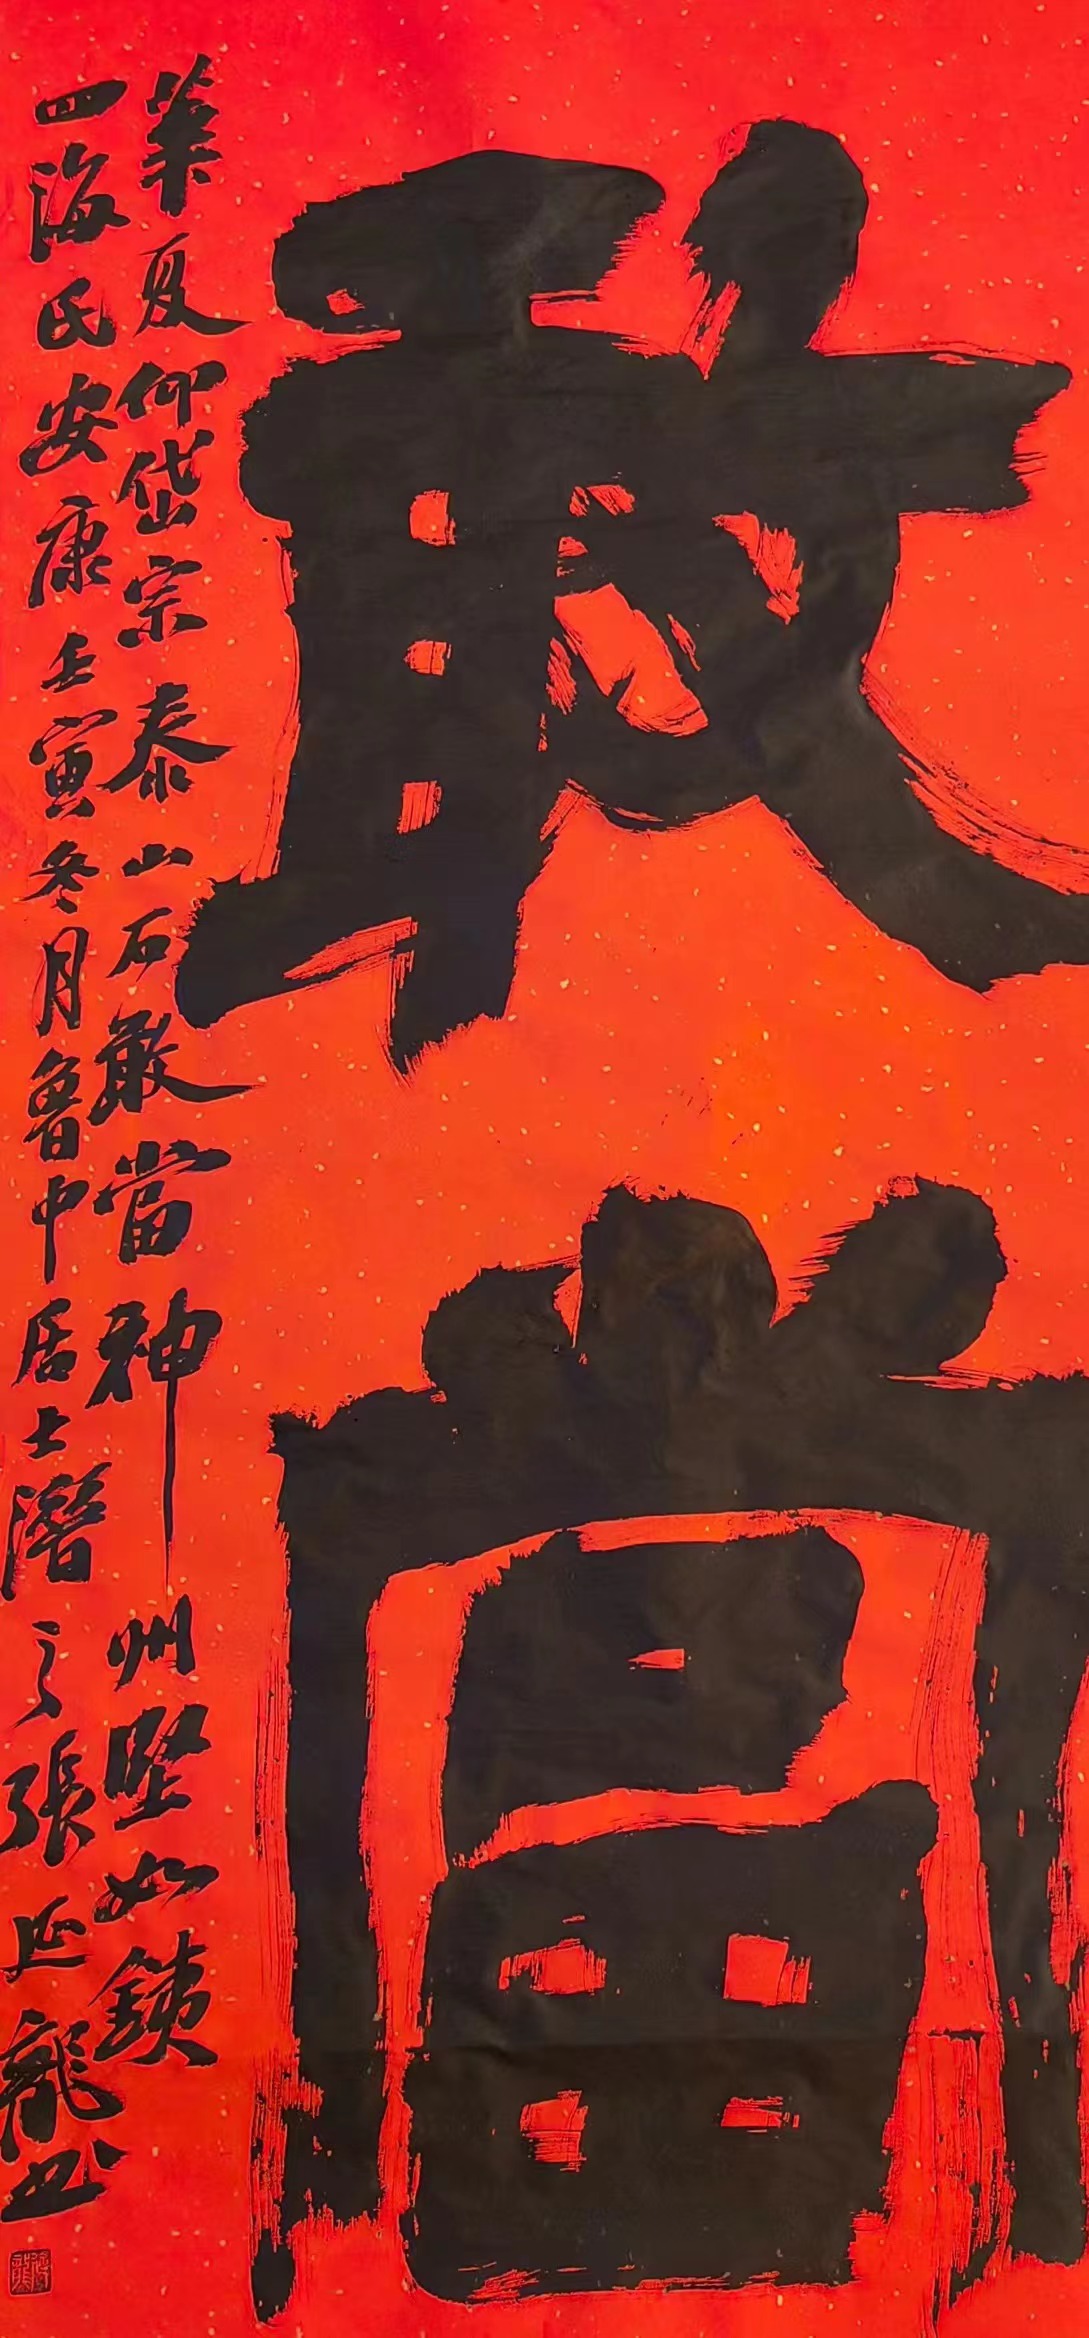 敢當
華夏仰岱宗泰山石敢當神州堅如銕
四海民安康壬寅冬月魯中居士潛之張延龍書